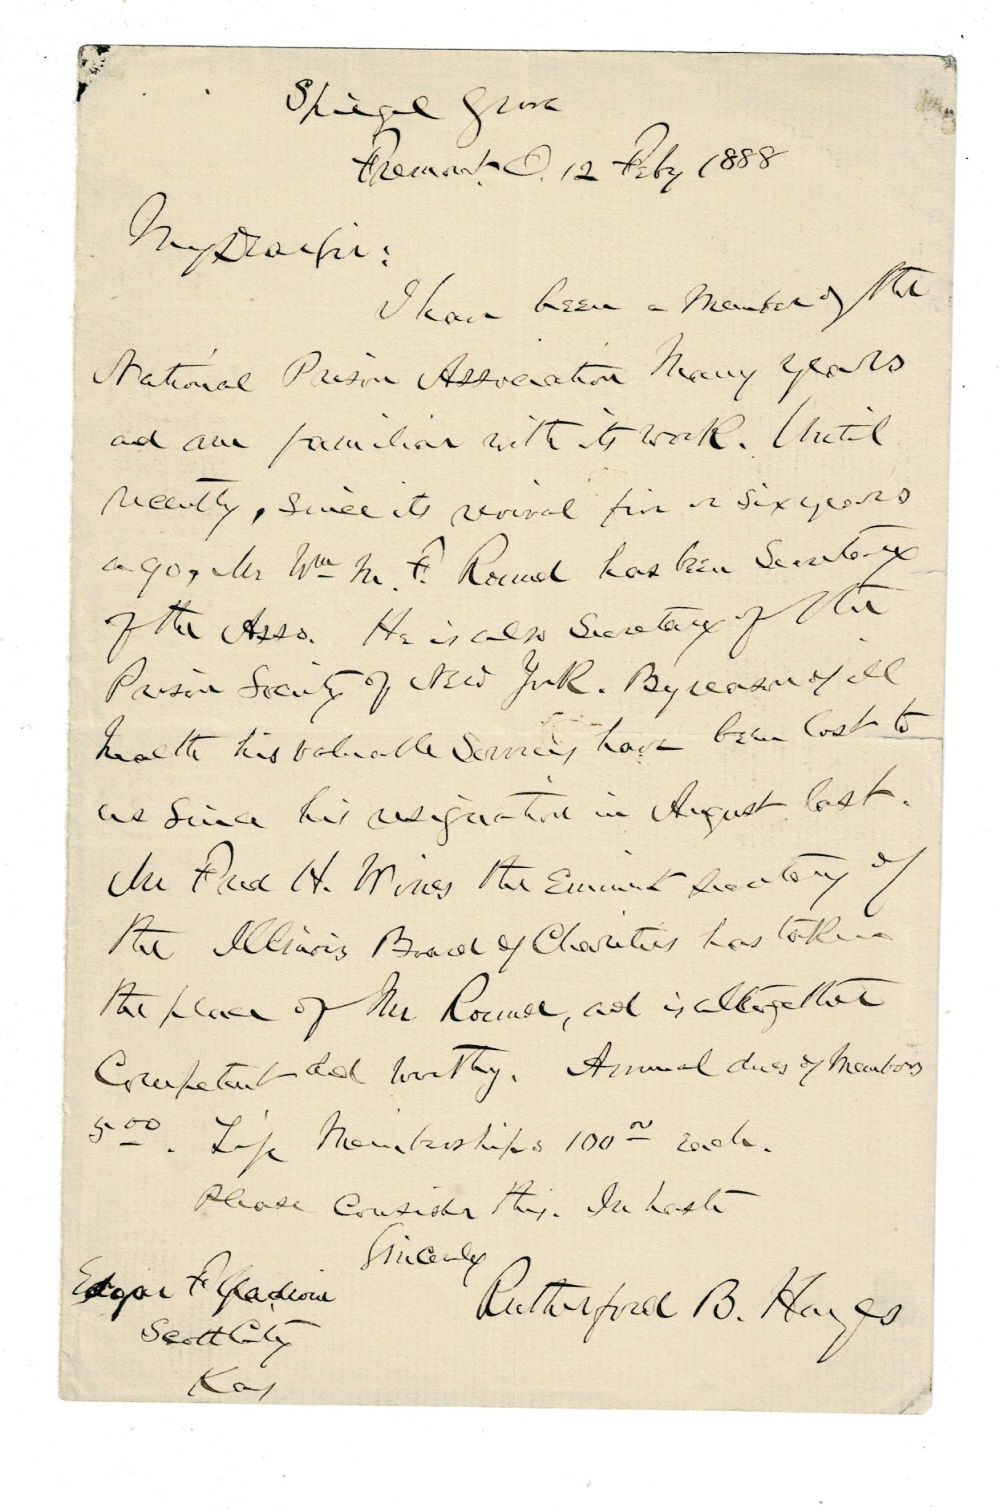 Spiegel Grove
Fremont, O. 12 Feby 1888
My Dear Sir:
I have been a Member of the
National Prison Association Many years
and am familiar with its work. Until
recently, since its revival five or six years
ago, Mr Wm. M. F. Round has been Secretary
of the Asso. He is also Secretary of the
Prison Society of New York. By reason of ill
health his valuable Services have been lost to
us Since his resignation in August last.
Mr Fred H. Wines the Eminent Secretary of
the Illinois Board of Charities has taken
the place of Mr Round, and is altogether
Competent and worthy. Annual dues of Members
5 00. Life Memberships 100 each.
Please Consider this. In haste
Sincerely
Rutherford B. Hayes
Edgar F.
Scott City
Kas